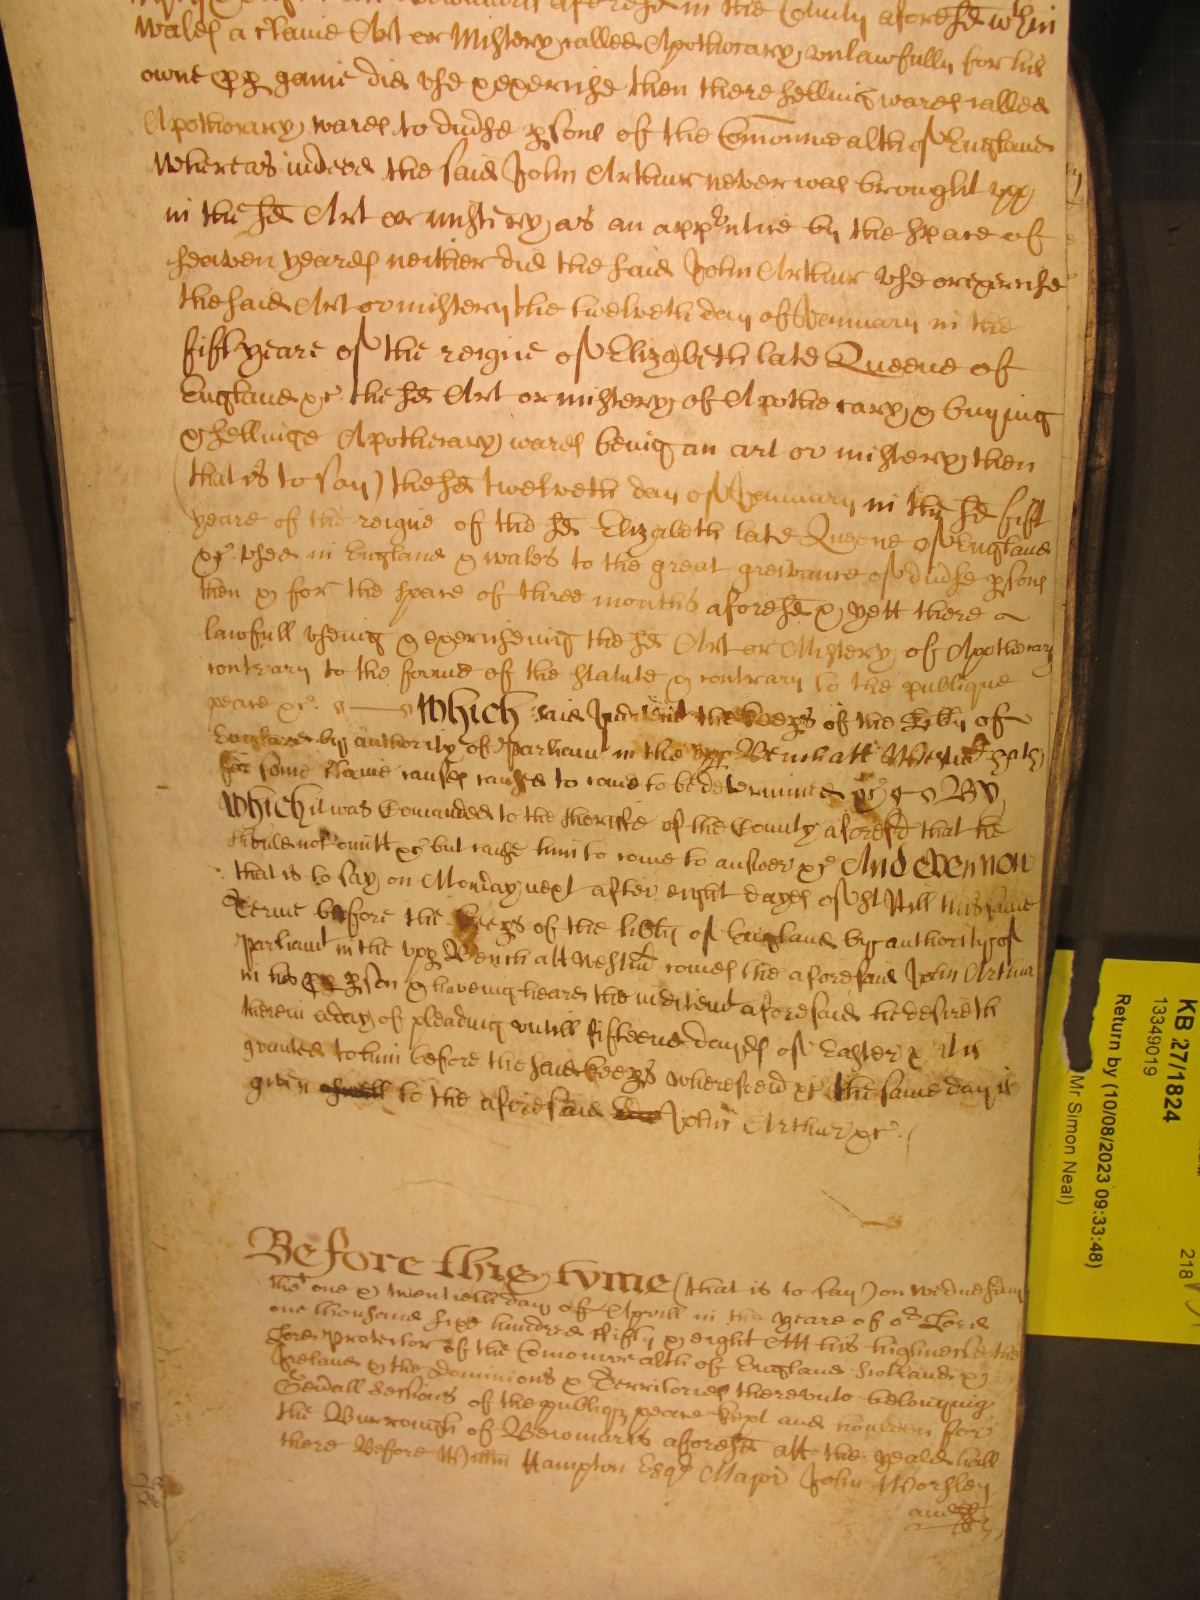 aforesd in the County aforesd wthin
Wales a certaine Art or Mistery called Apothecary unlawfully for his
owne pp gaine did use & exercise then there selling wares called
Apothecary wares to divse psons of the Comonwealth of England
Whereas indeed the said John Arthur never was brought upp
in the sd Art or mistery as an apprntice by the space of
seaven yeares neither did the said John Arthur use or exercise
the said Art or mistery the twelveth day of January in the
fift yeare of the reigne of Elizabeth late Queene of
England &c the sd Art or mistery of Apothecary & buying
& sellinge Apothecary wares being an art or mistery then
(that is to say) the sd twelveth day of January in the sd fift
yeare of the reigne of the sd Elizabeth late Queene of England
&c used in England & wales to the great greivance of divse psons
then & for the space of three months aforesd & yett there
lawfull useing & exerciseing the sd Art or Mistery of Apothecary
contrary to the forme of the statute & contrary to the publique
peace &c. Which said Indictmt the Keeps of the Libty of
England by authority of Parliamt in the upp Bench att Westmr hath
for some certaine causes caused to come to be determined &c By
Which it was Comanded to the Sheriffe of the County aforesd that he
should not omitt &c but cause him to come to answer &c And Now
that is to say on Monday next after eight dayes of St Hill this same
Terme before the Keeps of the libty of England by authority of
Parliamt in the upp Bench att Westmr comes the aforesaid John Arthur
in his pp pson & haveing heard the indictmt aforesaid he desireth
therein a day of pleading untill fifteene dayes of Easter & it is
granted to him before the said keeps wheresoevr &c the same day is
given to the aforesaid John Arthur &c.
Before this tyme (that is to say) on wednesday
the one & twentieth day of Aprill in the yeare of or Lord
one thousand six hundred fifty & eight Att his highnesse the
Lord Protector of the Comonwealth of England Scotland &
Ireland & the Dominions & Territories thereunto belonging
Genrall Sessions of the publiq peace kept and houlden for
the Burrough of Bewmaris aforesd att the yeald hall
there Before Willm Hampton Esqr Major John Worsley
and
KB 27/1824
13349019
Return by (10/08/2023 09:33:48)
Mr Simon Neal)
218